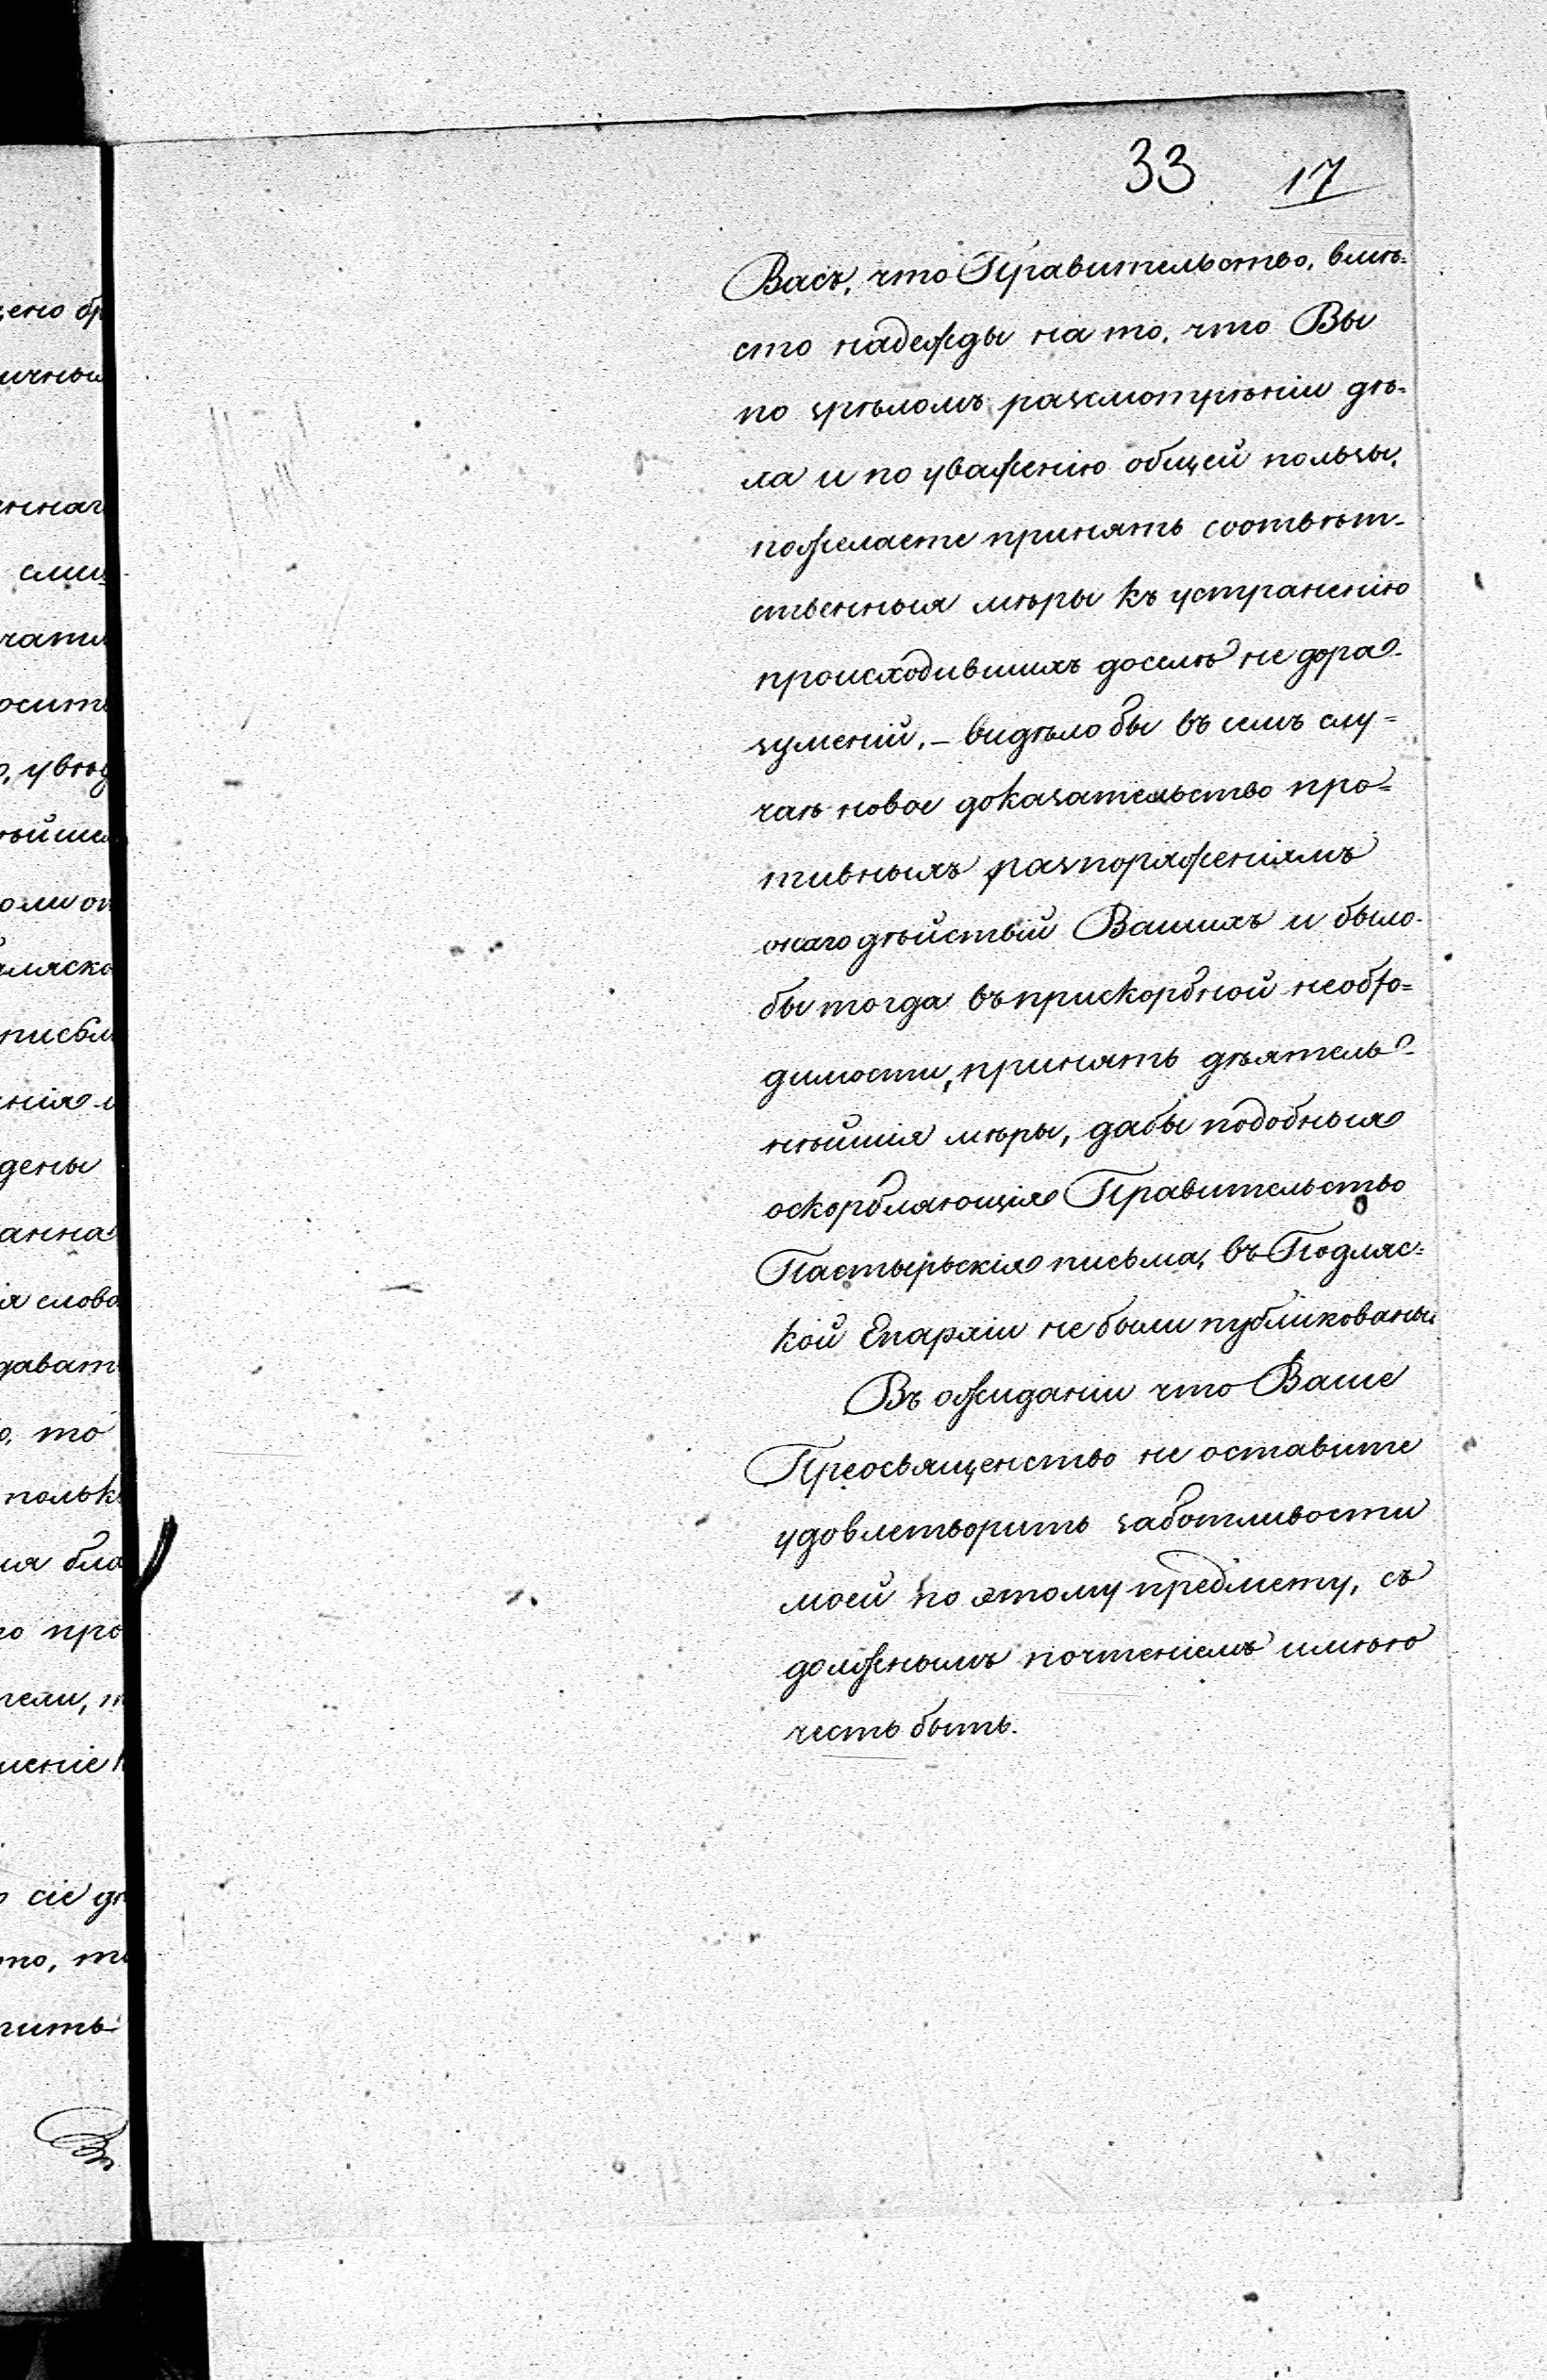 33 17
Васъ, что Правительство, вмѣ-
сто надежды на то, что Вы
по зрѣломъ разсмотрѣніи дѣ-
ла и по уваженію общей пользы,
пожелаете принять соотвѣт-
ственныя мѣры къ устраненію
происходившихъ доселѣ не дора-
зумѣній, – видѣло бы въ семъ слу-
чаѣ новое доказательство про-
тивныхъ разпоряженіямъ
онаго дѣйствій Вашихъ и было-
бы тогда въ прискорбной необхо-
димости, принять дѣятель-
нѣйшія мѣры, дабы подобныя
оскорбляющія Правительство
Пастырьскія письма, въ Подляс-
кой Епархіи не были публикованы.
Въ ожиданіи что Ваше
Преосвященство не оставите
удовлетворить заботливости
моей по этому предмету, съ
должнымъ почтеніемъ имѣю
честь быть.